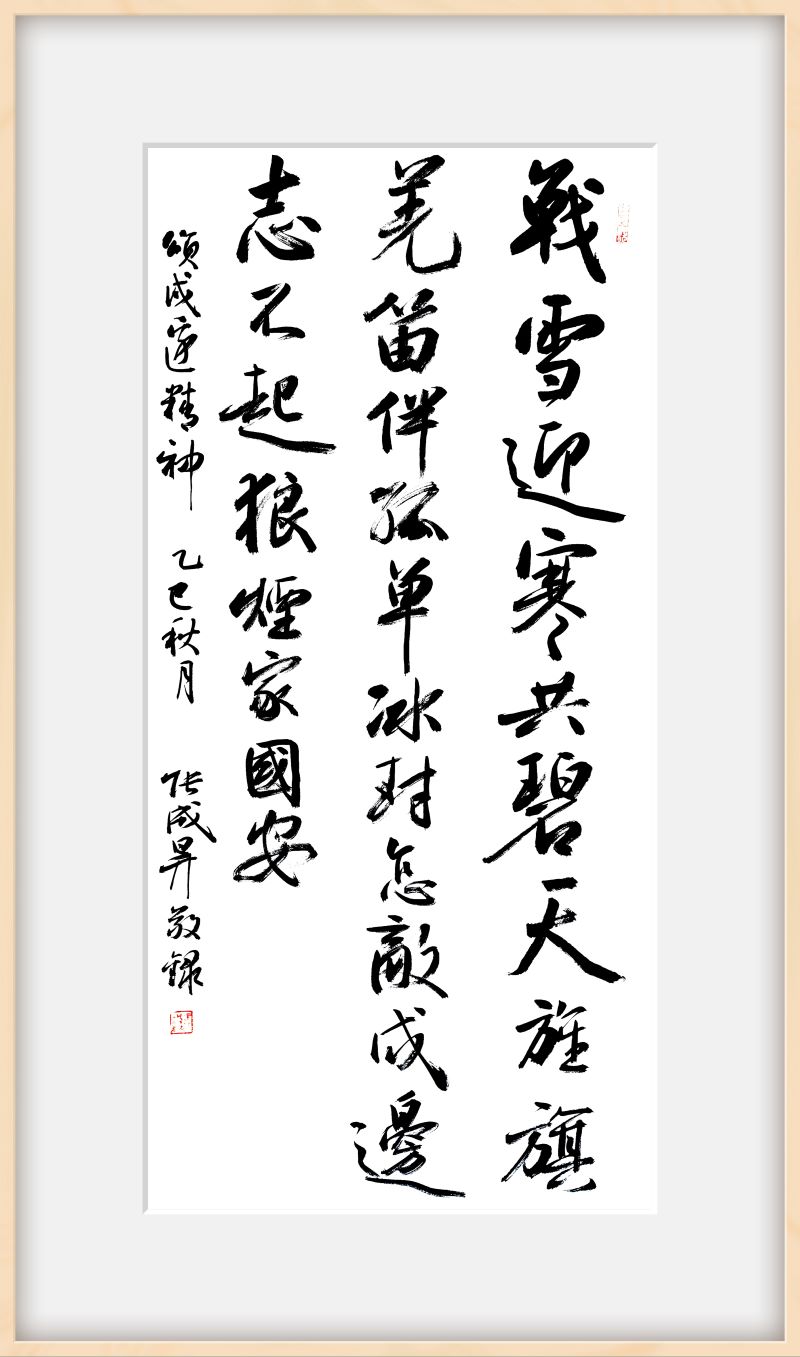 戰雪迎寒共碧天旌旗
羌笛伴孤单冰封怎敵戍邊
志不起狼煙家國安
頌戍邊精神 乙巳秋月 张成昇敬録